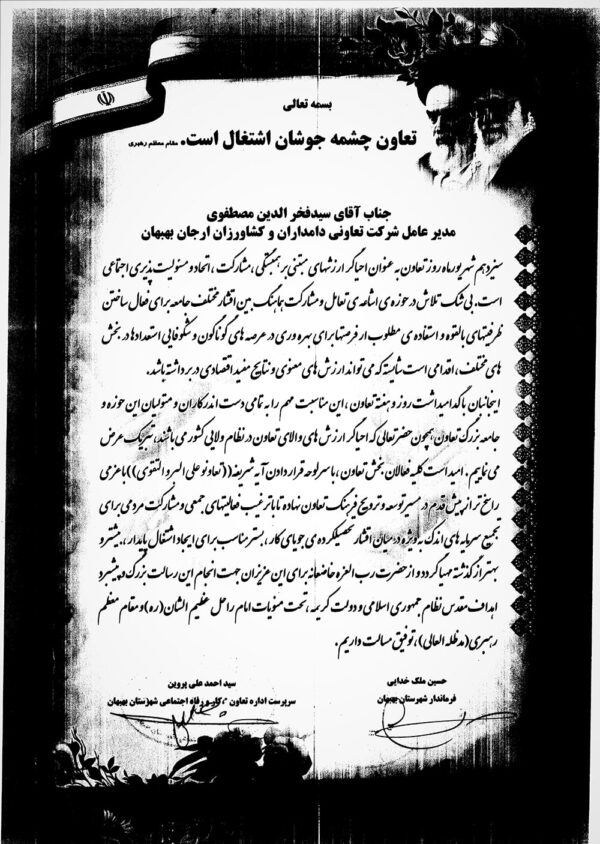 بسمه تعالی
تعاون چشمه جوشان اشتغال است. مقام معظم رهبری
جناب آقای سیدفخر الدین مصطفوی
مدیر عامل شرکت تعاونی دامداران و کشاورزان ارجان بهبهان
سیزدهم شهریورماه روز تعاون به عنوان احیاگر ارزشهای مبتنی بر همبستگی ، مشارکت ، اتحاد و مسئولیت پذیری اجتماعی
است. بی شک تلاش در حوزه ی اشاعه ی تعامل و مشارکت هماهنگ بین اقشار مختلف جامعه برای فعال ساختن
ظرفیتهای بالقوه و استفاده ی مطلوب از فرصتها برای بهره وری در عرصه های گوناگون و شکوفایی استعدادها در بخش
های مختلف ، اقدامی است شایسته که می تواند ارزش های معنوی و نتایج مفید اقتصادی در بر داشته باشد.
اینجانبان با گرامیداشت روز و هفته تعاون ، این مناسبت مهم را به تمامی دست اندرکاران و متولیان این حوزه و
جامعه بزرگ تعاون همچون حضرتعالی که احیاگر ارزش های والای تعاون در نظام ولایی کشور می باشند، تبریک عرض
می نماییم . امید است کلیه فعالان بخش تعاون ، با سرلوحه قرار دادن آیه شریفه ((تعاونو علی البر و التقوی)) با عزمی
راسخ تر از پیش قدم در مسیر توسعه و ترویج فرهنگ تعاون نهاده تا با ترغیب فعالیتهای جمعی و مشارکت مردمی برای
تجمیع سرمایه های اندک به ویژه در میان اقشار تحصیلکرده ی جویای کار ، بستر مناسب برای ایجاد اشتغال پایدار ، بیشتر و
بهتر از گذشته مهیا گردد و از حضرت رب العزه خاضعانه برای این عزیزان جهت انجام این رسالت بزرگ و پیشبرد
اهداف مقدس نظام جمهوری اسلامی و دولت کریمه ، تحت منویات امام راحل عظیم الشان (ره) و مقام معظم
رهبری (مدظله العالی) ، توفیق مسالت داریم .
حسین ملک خدایی
فرماندار شهرستان بهبهان
سید احمد علی پروین
سرپرست اداره تعاون ، کار و رفاه اجتماعی شهرستان بهبهان